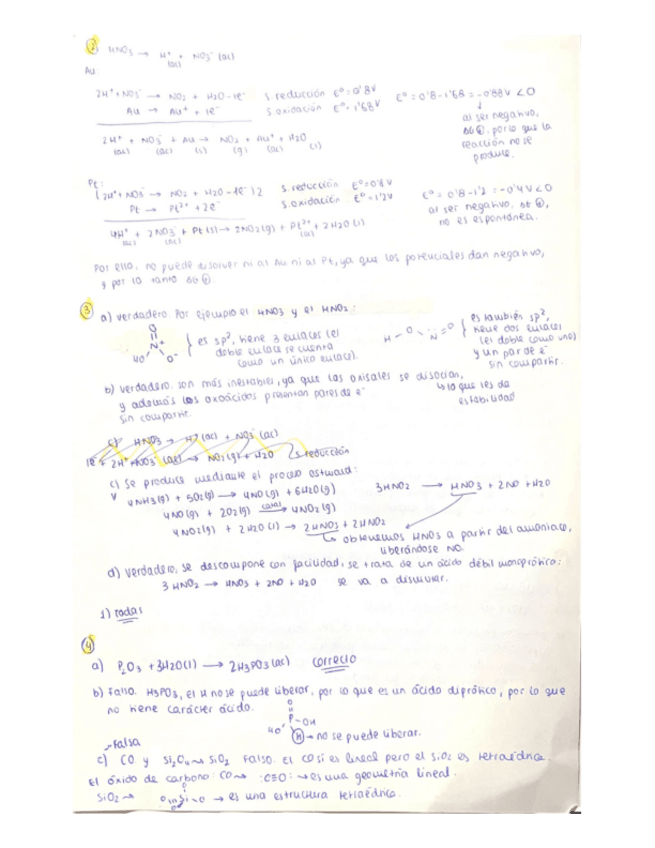 ② HNO3 → H+ (ac) + NO3- (ac)
Au:
2H+ + NO3- → NO2 + H2O - 1e- s. reducción E°=0'8V E°= 0'8-1'68 = -0'88V <0
Au → Au+ + 1e- s. oxidación E°=1'68V al ser negativo,
ΔG ⊕, por lo que la
reacción no se
produce.
2H+ (ac) + NO3- (ac) + Au (s) → NO2 (g) + Au+ (ac) + H2O (l)
Pt:
(2H+ + NO3- → NO2 + H2O - 1e-) 2 s. reducción E°=0'8V E°= 0'8-1'2 = -0'4V <0
Pt → Pt2+ + 2e- s. oxidación E°=1'2V al ser negativo, ΔG ⊕,
no es espontánea.
4H+ (ac) + 2NO3- (ac) + Pt(s) → 2NO2(g) + Pt2+ (ac) + 2H2O(l)
Por ello, no puede disolver ni al Au ni al Pt, ya que los potenciales dan negativo,
y por lo tanto ΔG ⊕
③ a) Verdadero. Por ejemplo el HNO3 y el HNO2:
O N+ HO O- es sp², tiene 3 enlaces (el
doble enlace se cuenta
como un único enlace).
H - O N = O es también sp²,
tiene dos enlaces
(el doble como uno)
y un par de e-
sin compartir.
b) Verdadero. son más inestables, ya que las oxisales se disocian,
y además los oxoácidos presentan pares de e-
sin compartir.
↳ lo que les da
estabilidad
c) HNO3 → H+ (ac) + NO3- (ac)
1e- + 2H+ + NO3- (ac) → NO2(g) + H2O s. reducción
c) Se produce mediante el proceso ostward:
V 4NH3(g) + 5O2(g) → 4NO(g) + 6H2O(g) 3HNO2 → HNO3 + 2NO + H2O
4NO(g) + 2O2(g) → 4NO2(g)
4NO2(g) + 2H2O(l) → 2HNO3 + 2HNO2
↳ obtenemos HNO3 a partir del amoniaco,
liberándose NO.
d) Verdadero, se descompone con facilidad, se trata de un ácido débil monoprótico:
3HNO2 → HNO3 + 2NO + H2O se va a dismutar.
1) todas
④
a) P2O3 + 3H2O(l) → 2H3PO3(ac) correcto
b) Falso. H3PO3, el H no se puede liberar, por lo que es un ácido diprótico, por lo que
no tiene carácter ácido.
O P - OH HO H → no se puede liberar.
Falsa
c) CO y Si2O4 → SiO2 Falso. El CO sí es lineal pero el SiO2 es tetraédrica.
El óxido de carbono: CO → :C≡O: → es una geometría lineal.
SiO2 → O Si O → es una estructura tetraédrica.